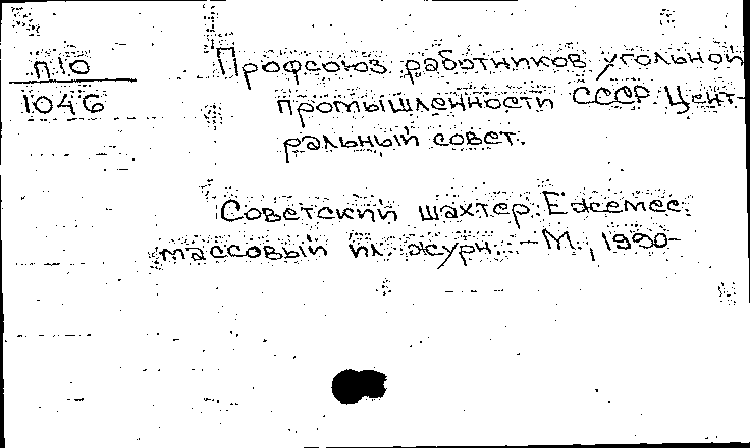 П10
1046
Профсоюз работников угольной
промышленности СССР. Цент-
ральный совет.
Советский шахтер. Ежемес.
массовый ил. журн. - М., 1990-